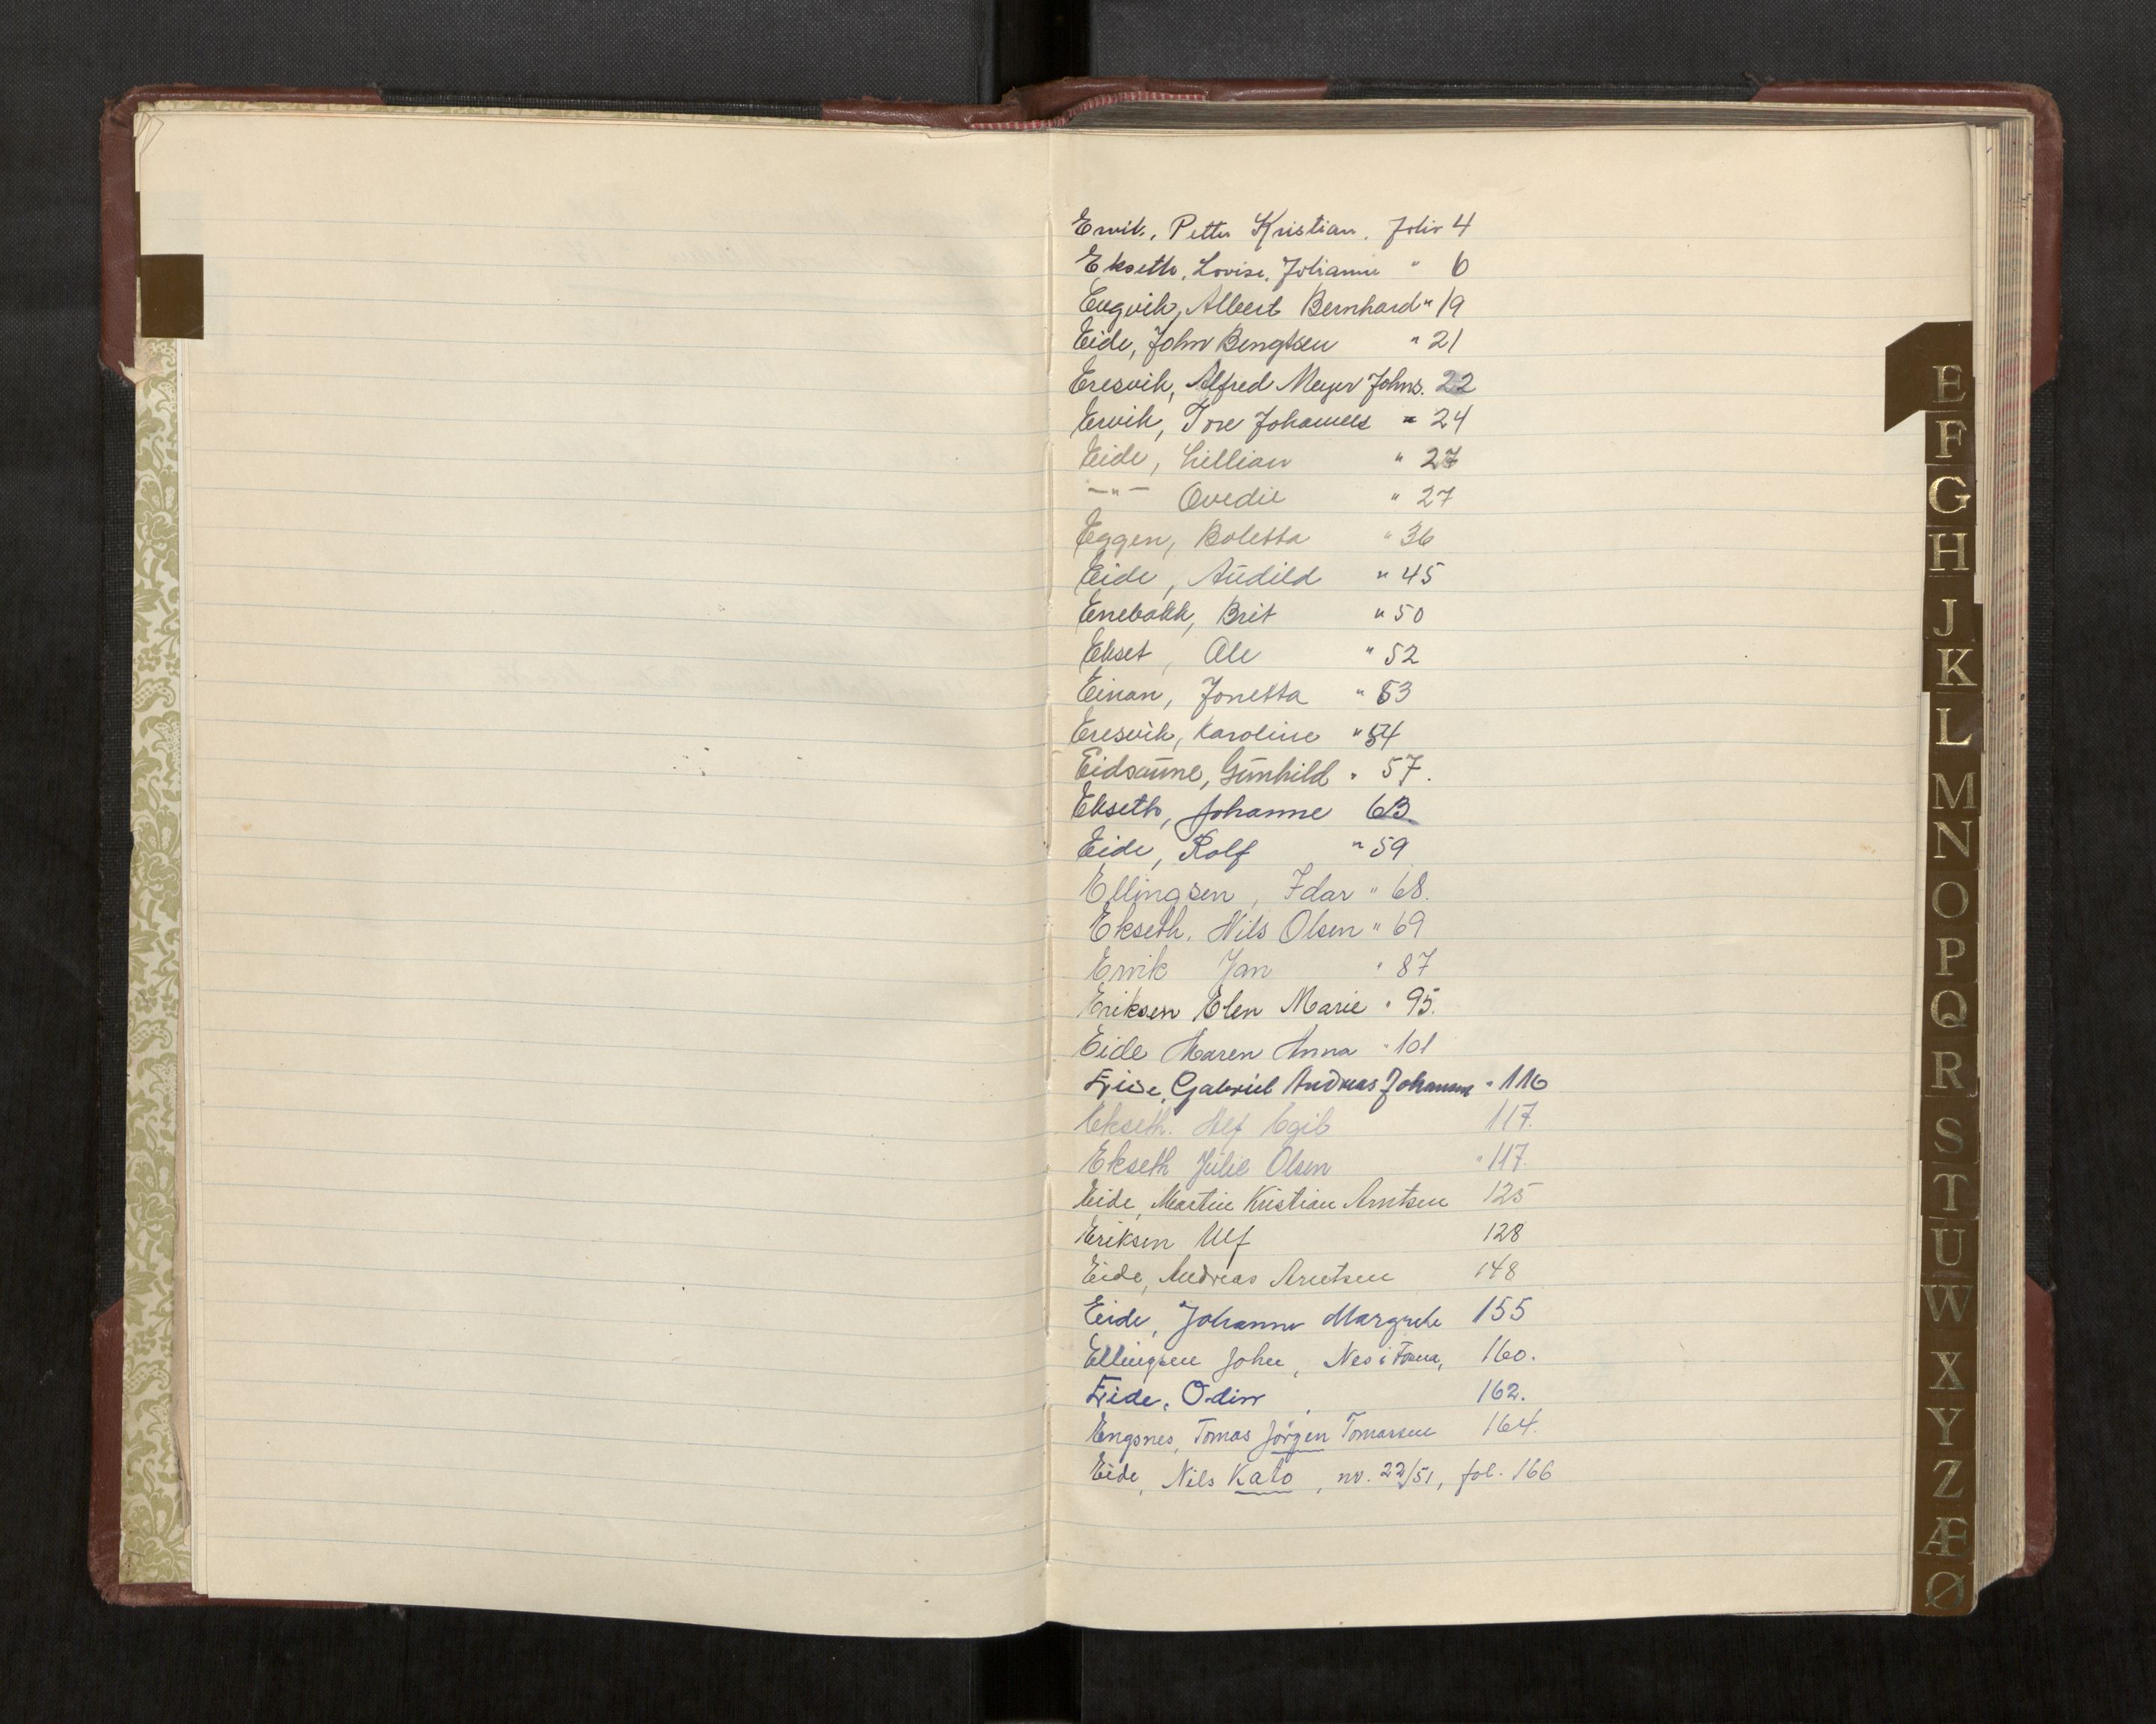 Ervik, Petter Kristian. Folio 4
Ekseth, Lovise, Johanne " 6
Engvik, Albert Bernhard " 19
Eide, John Bengtsen " 21
Eresvik, Alfred Meyer Johns. 22
Ervik, Tore Johannes " 24
Eide, Lillian " 27
—"— Ovedie " 27
Eggen, Boletta " 36
Eide, Audild " 45
Enebakk, Brit " 50
Ekset, Ole " 52
Einan, Jonetta " 53
Eresvik, Karoline " 54
Eidsaune, Gunhild " 57.
Ekseth, Johanne 63
Eide, Rolf " 59
Ellingsen, Idar " 68.
Ekseth, Nils Olsen " 69
Ervik Jan " 87
Eriksen Elen Marie " 95.
Eide Maren Anna " 101
Eide, Gabriel Andreas Johansen " 116
Ekseth. Alf Egil 117.
Ekseth Julie Olsen " 117.
Eide, Martin Kristian Arntsen 125
Eriksen Ulf 128
Eide, Andreas Arntsen 148
Eide, Johanne Margrete 155
Ellingsen John, Nes i Fosna, 160.
Eide, Odin 162.
Engsnes, Tomas Jörgen Tomassen 164.
Eide, Nils Kato, nr. 22/51, fol. 166
E
F
G
H
J
K
L
M
N
O
P
Q
R
S
T
U
W
X
Y
Z
Æ
Ø